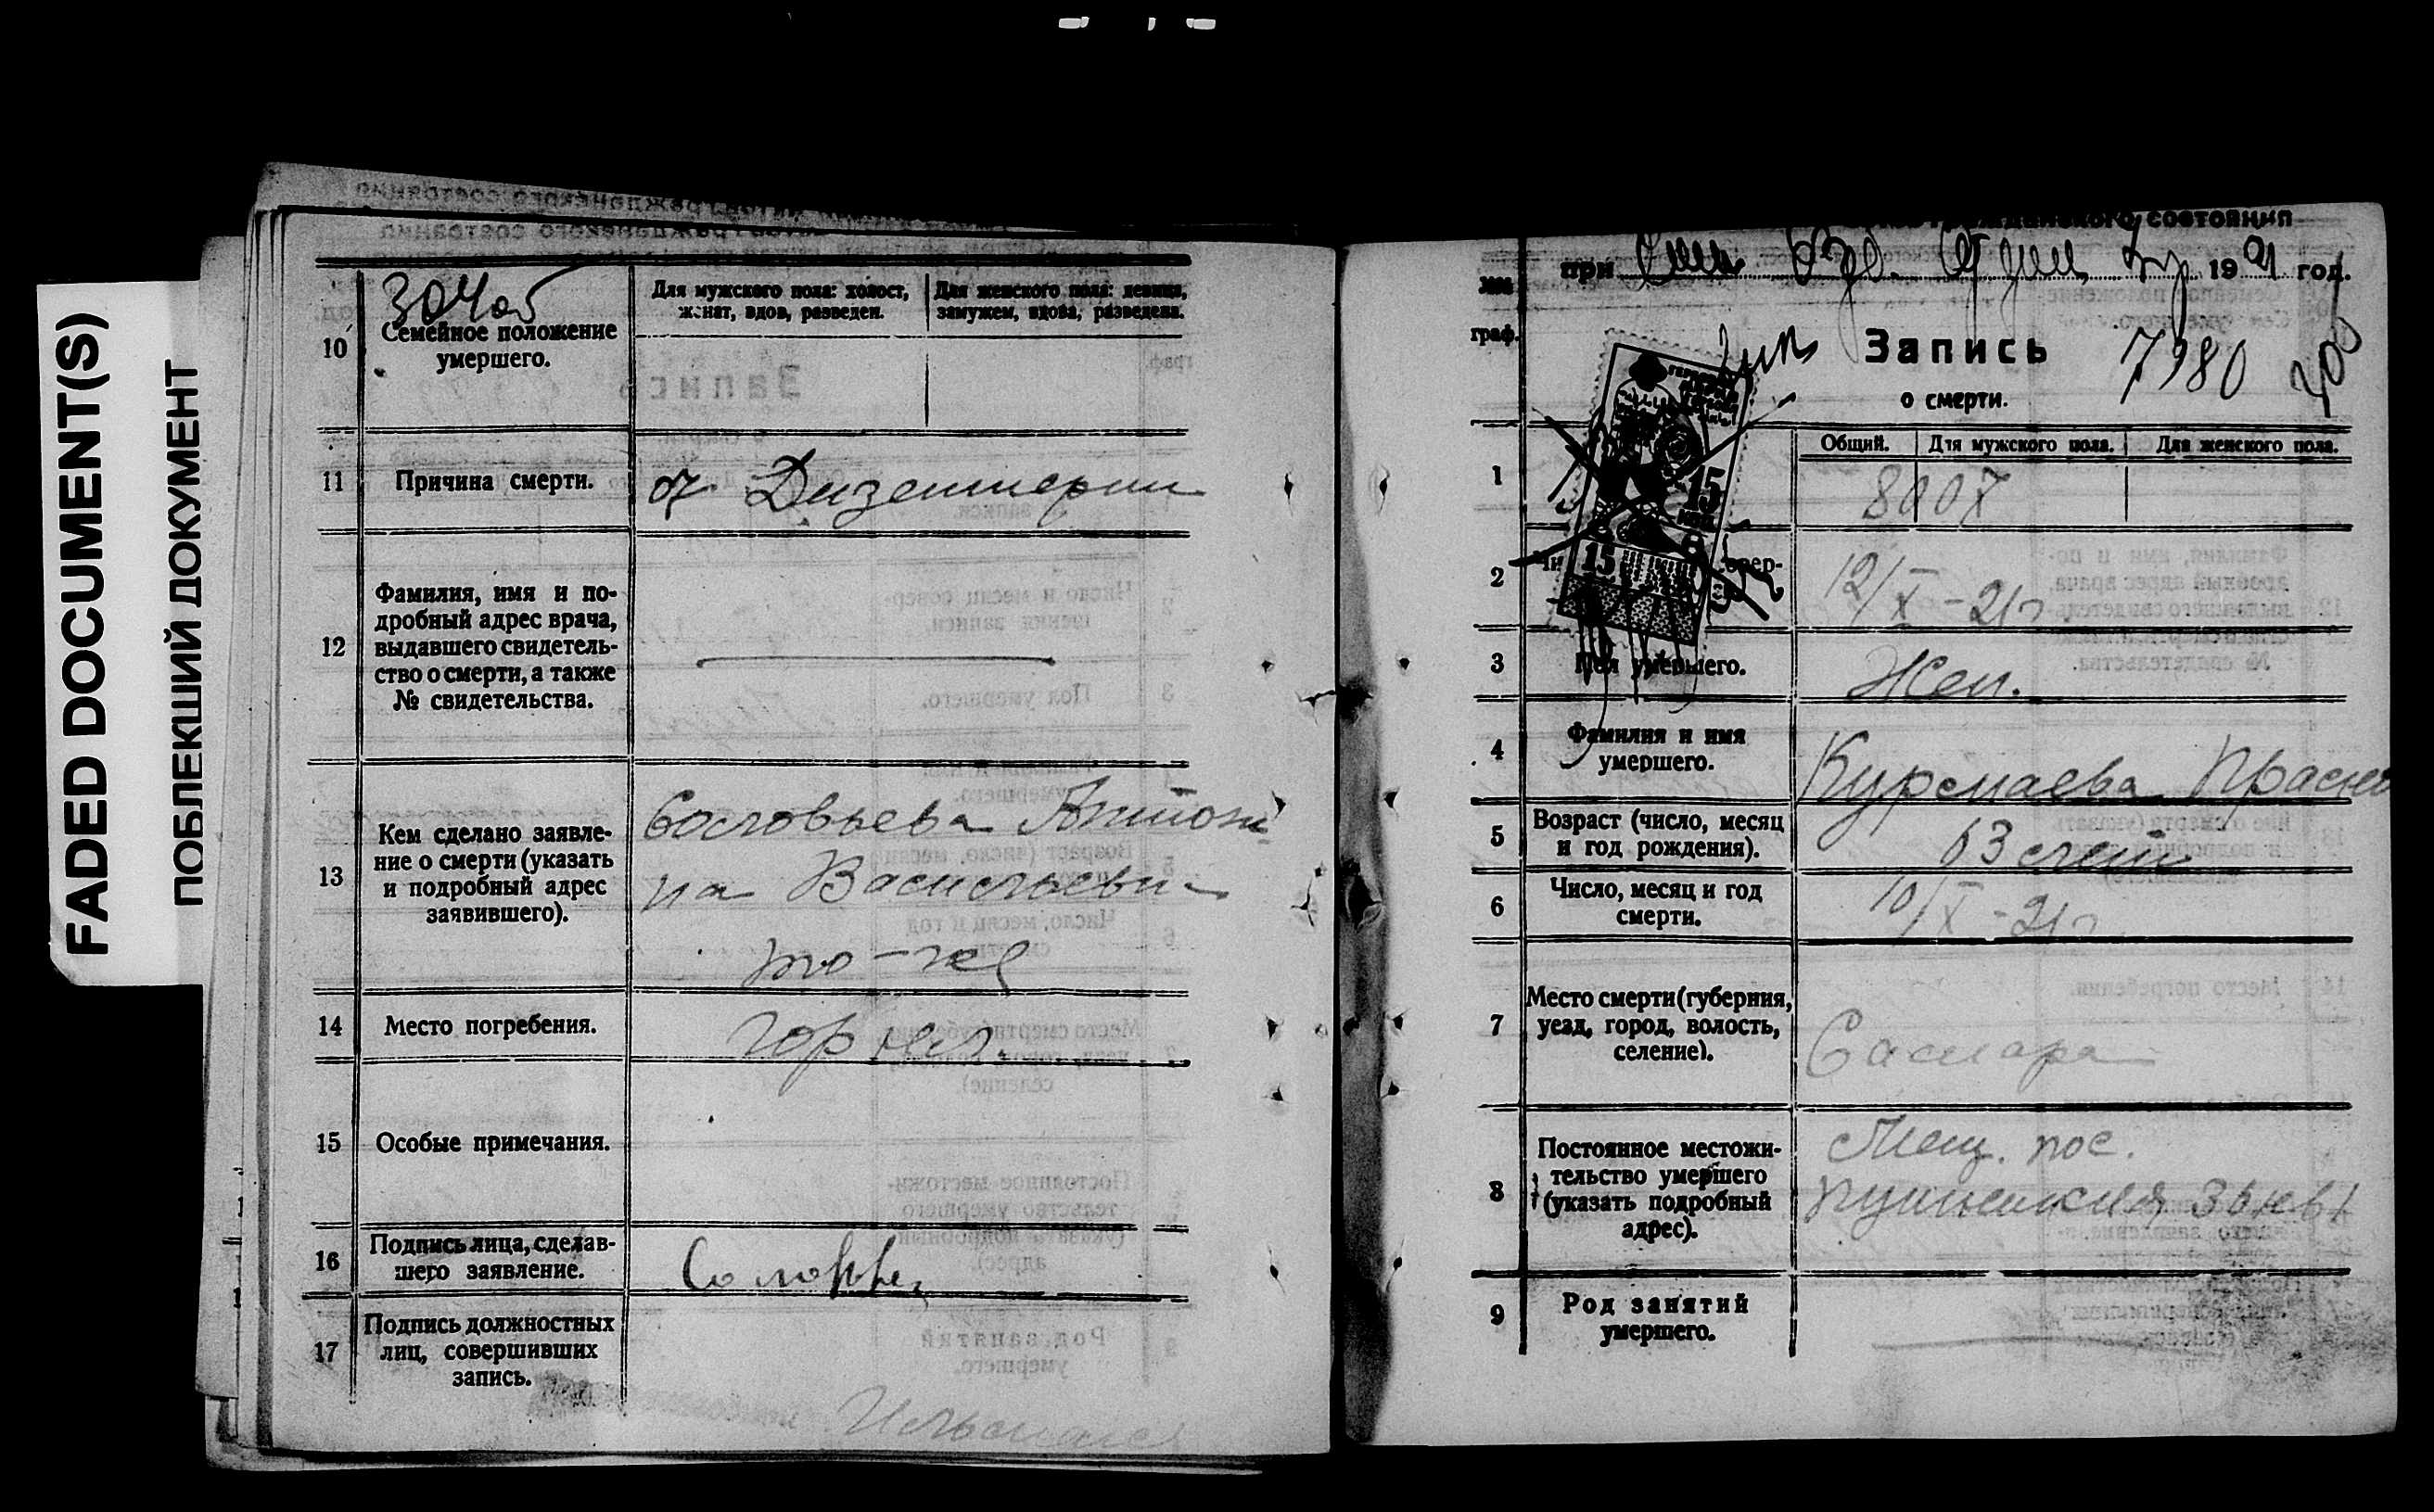 FADED DOCUMENT(S)
ПОБЛЕКШИЙ ДОКУМЕНТ
10
Семейное положение
умершего.
Для мужского пола: холост,
женат, вдов, разведен.
Для женского пола: девица,
замужем, вдова, разведена.
11
Причина смерти.
от Дизентерии
12
Фамилия, имя и по-
дробный адрес врача,
выдавшего свидетель-
ство о смерти, а также
№ свидетельства.
13
Кем сделано заявле-
ние о смерти (указать
и подробный адрес
заявившего).
Соловьева Антони
на Васильевн
то-же
14
Место погребения.
гор
15
Особые примечания.
16
Подпись лица, сделав-
шего заявление.
17
Подпись должностных
лиц, совершивших
запись.
состояния
при
19 21 год.
№№
граф.
Запись
7980
о смерти.
1
Общий.
Для мужского пола.
Для женского пола.
8007
15
15
2
12/X-21г
3
Пол умершего.
Жен.
4
Фамилия и имя
умершего.
Курмаева
5
Возраст (число, месяц
и год рождения).
63 лет
6
Число, месяц и год
смерти.
10/X-21г
7
Место смерти (губерния,
уезд, город, волость,
селение).
Самара
8
Постоянное местожи-
тельство умершего
(указать подробный
адрес).
Мещ. пос.
9
Род занятий
умершего.